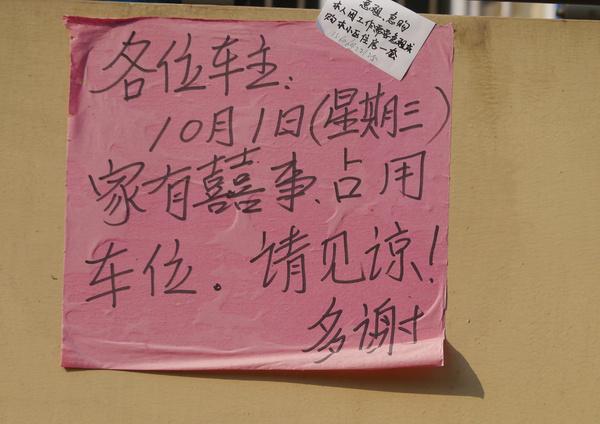 急租、急购
本人因工作需要急租或
购本小区住房一套
各位车主:
10月1日(星期三)
家有囍事、占用
车位. 请见谅!
多谢